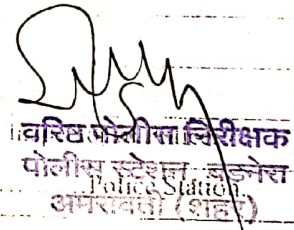 वरिष्ठ पोलीस निरीक्षक
पोलीस स्टेशन, बडनेरा
Police Station,
अमरावती (शहर)